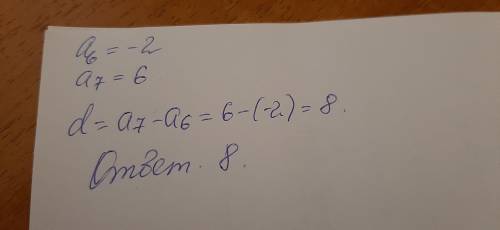 a₆ = -2
a₇ = 6
d = a₇ - a₆ = 6 - (-2) = 8.
Ответ. 8.